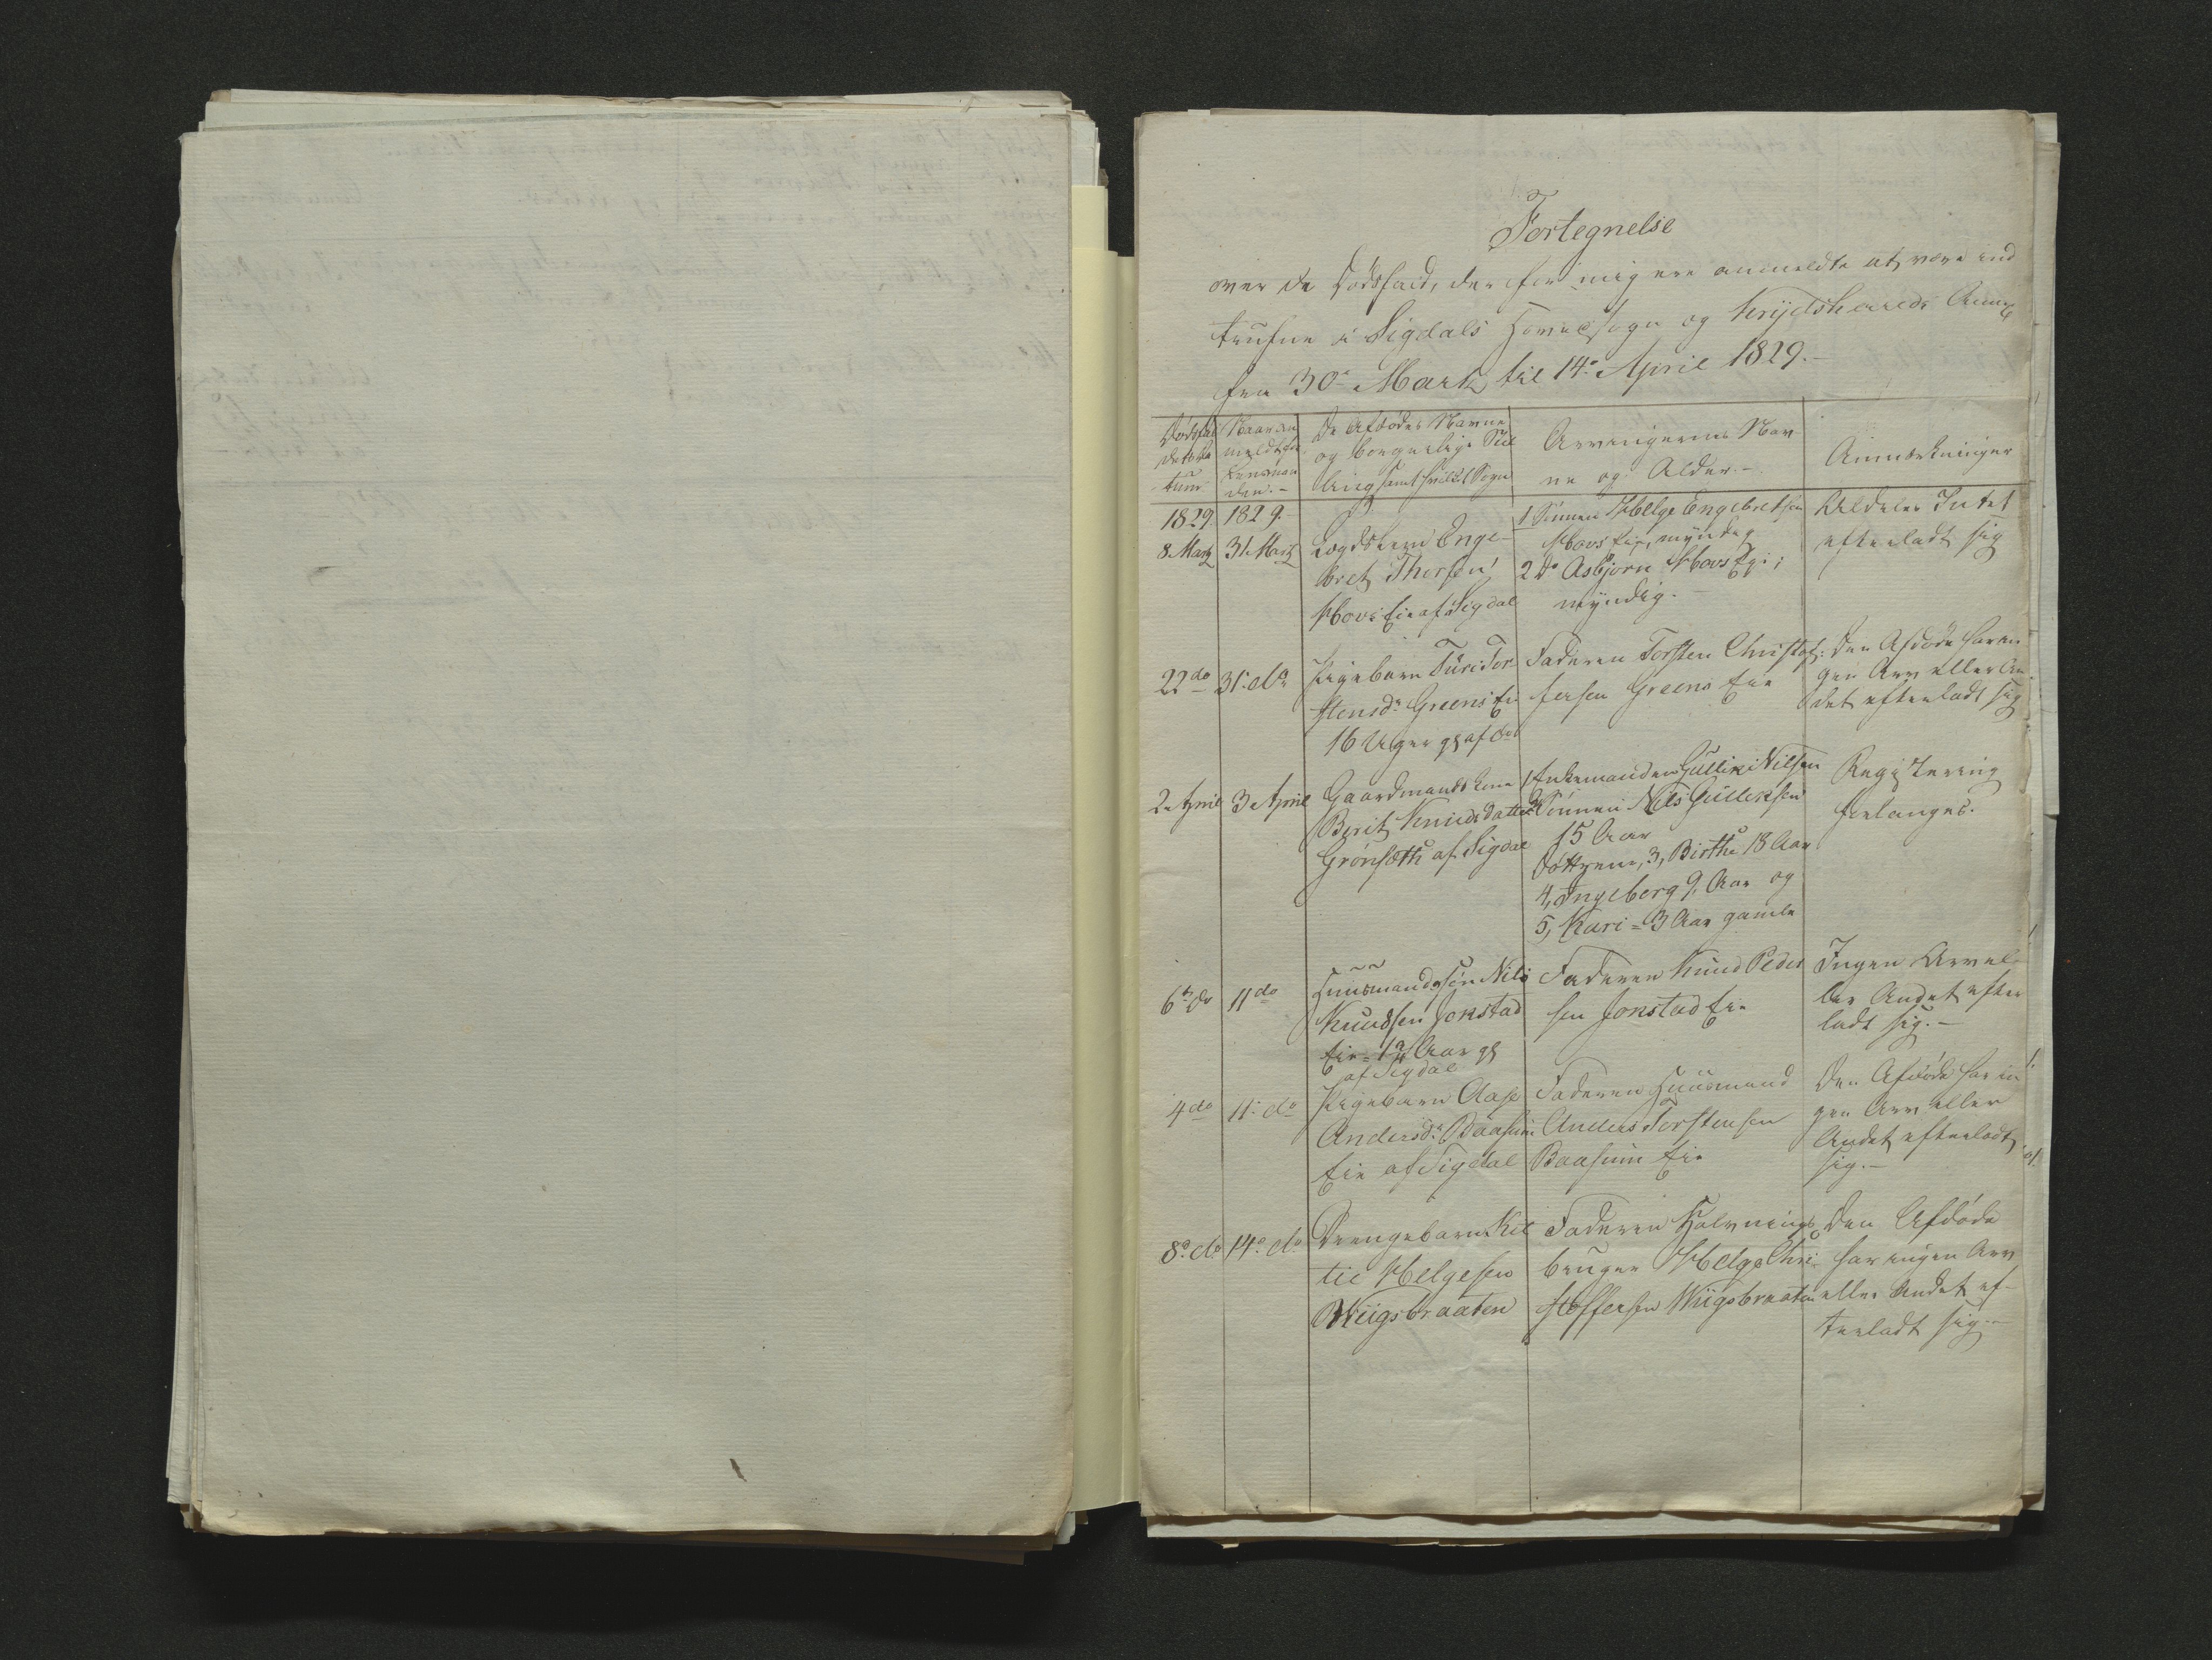 Fortegnelse
over de Dødsfald, der for mig ere anmeldte at være ind
trufne i Sigdals Hovedsogn og Krydshereds Annex
fra 30te Martz til 14de April 1829.-
Dødsfal
dets Da
tum
Naar an
meldt for
Lensman
den.-
De Afdødes Navne
og borgerlige Stil
ling samt hvilket Sogn
Arvingernes Nav
ne og Alder.-
Anmærkninger
1829
8 Martz
1829.
31 Martz
Logdskern Enge-
bret Thorsen
Hovs Eie af Sigdal
1 Sønnen Helge Engebretsen
Hovs Eie, myndig
2 do Asbjørn Hovs Eje;
myndig.-
Aldeles Intet
efterladt sig
22 do
31. do
Pigebarn Turi Tor
stensdr Greens Ei
16 Uger gl af do
Faderen Torsten Christof-
fersen Greens Eie
Den Afdøde har in
gen Arv eller An
det efterladt sig
2 April
3 April
Gaardmandskone
Berit Knudsdatter
Grønsæth af Sigdal
1 Enkemanden Gullik Nilsen
2 Sønnen Nils Gulliksen
15 Aar
Døttrene, 3, Birthe 18 Aar
4, Ingeberg 9, Aar og
5, Kari = 3 Aar gamle
Registering
forlanges.
6 do
11 do
Huusmandssøn Nils
Knudsen Jonstad
Eie = 1 Aar gl
af Sigdal
Faderen Knud Peder
sen Jonstad Eie
Ingen Arv el-
ler Andet efter
ladt sig.-
4 do
11. do
Pigebarn Aase
Andersdr Baasum
Eie af Sigdal
Faderen Huusmand
Anders Torstensen
Baasum Eie
Den Afdøde har in
gen Arv eller
Andet efterladt
sig.-
8. do
14. do
Drengebarn Kit
til Helgesen
Wiigsbraaten
Faderen Halvnings
bruger Helge Chri-
stoffersen Wiigsbraaten
Den Afdøde
har ingen Arv
eller Andet ef-
terladt sig.-